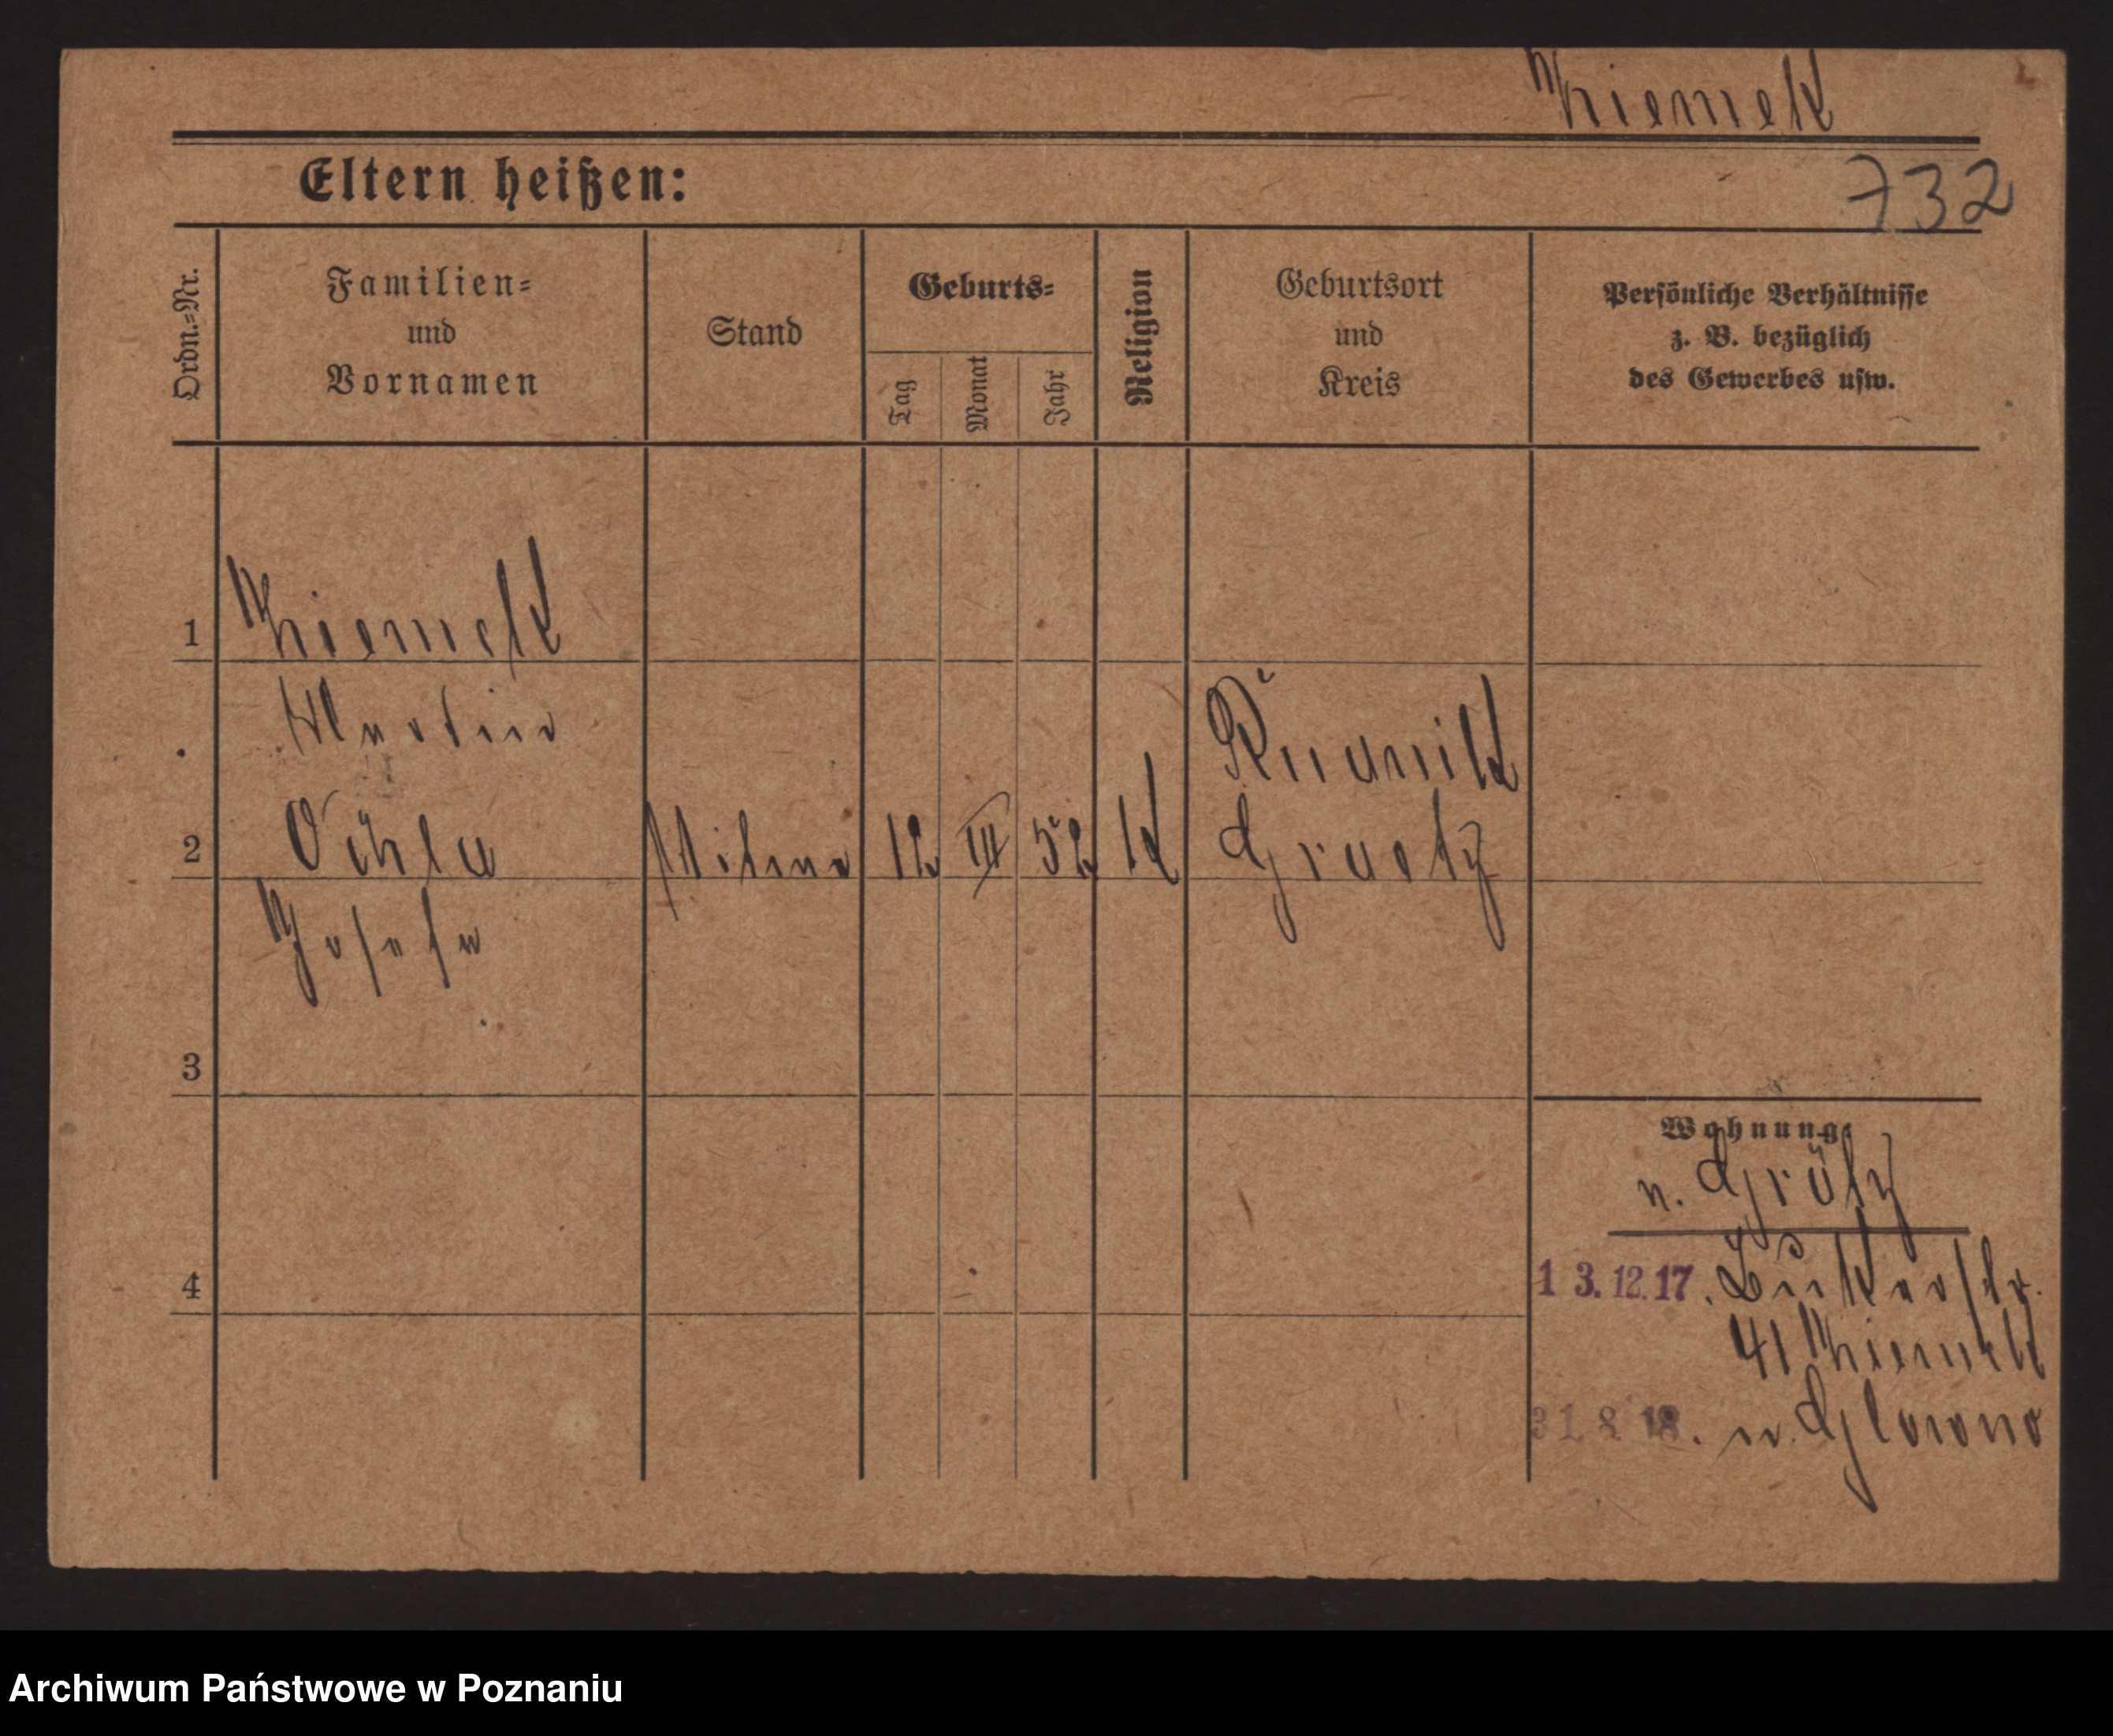 Thiemelt
Eltern heißen:
732
Ordn.-Nr.
Familien-
und
Vornamen
Stand
Geburts-
Tag
Monat
Jahr
Religion
Geburtsort
und
Kreis
Persönliche Verhältnisse
z. B. bezüglich
des Gewerbes usw.
1 Thiemelt
Martin
2 12 III 52 K Graetz
Josefa
3
Wohnung:
n. Grätz
4 13.12.17.
41 Thiemelt
31.8.18. n. Glowno
Archiwum Państwowe w Poznaniu